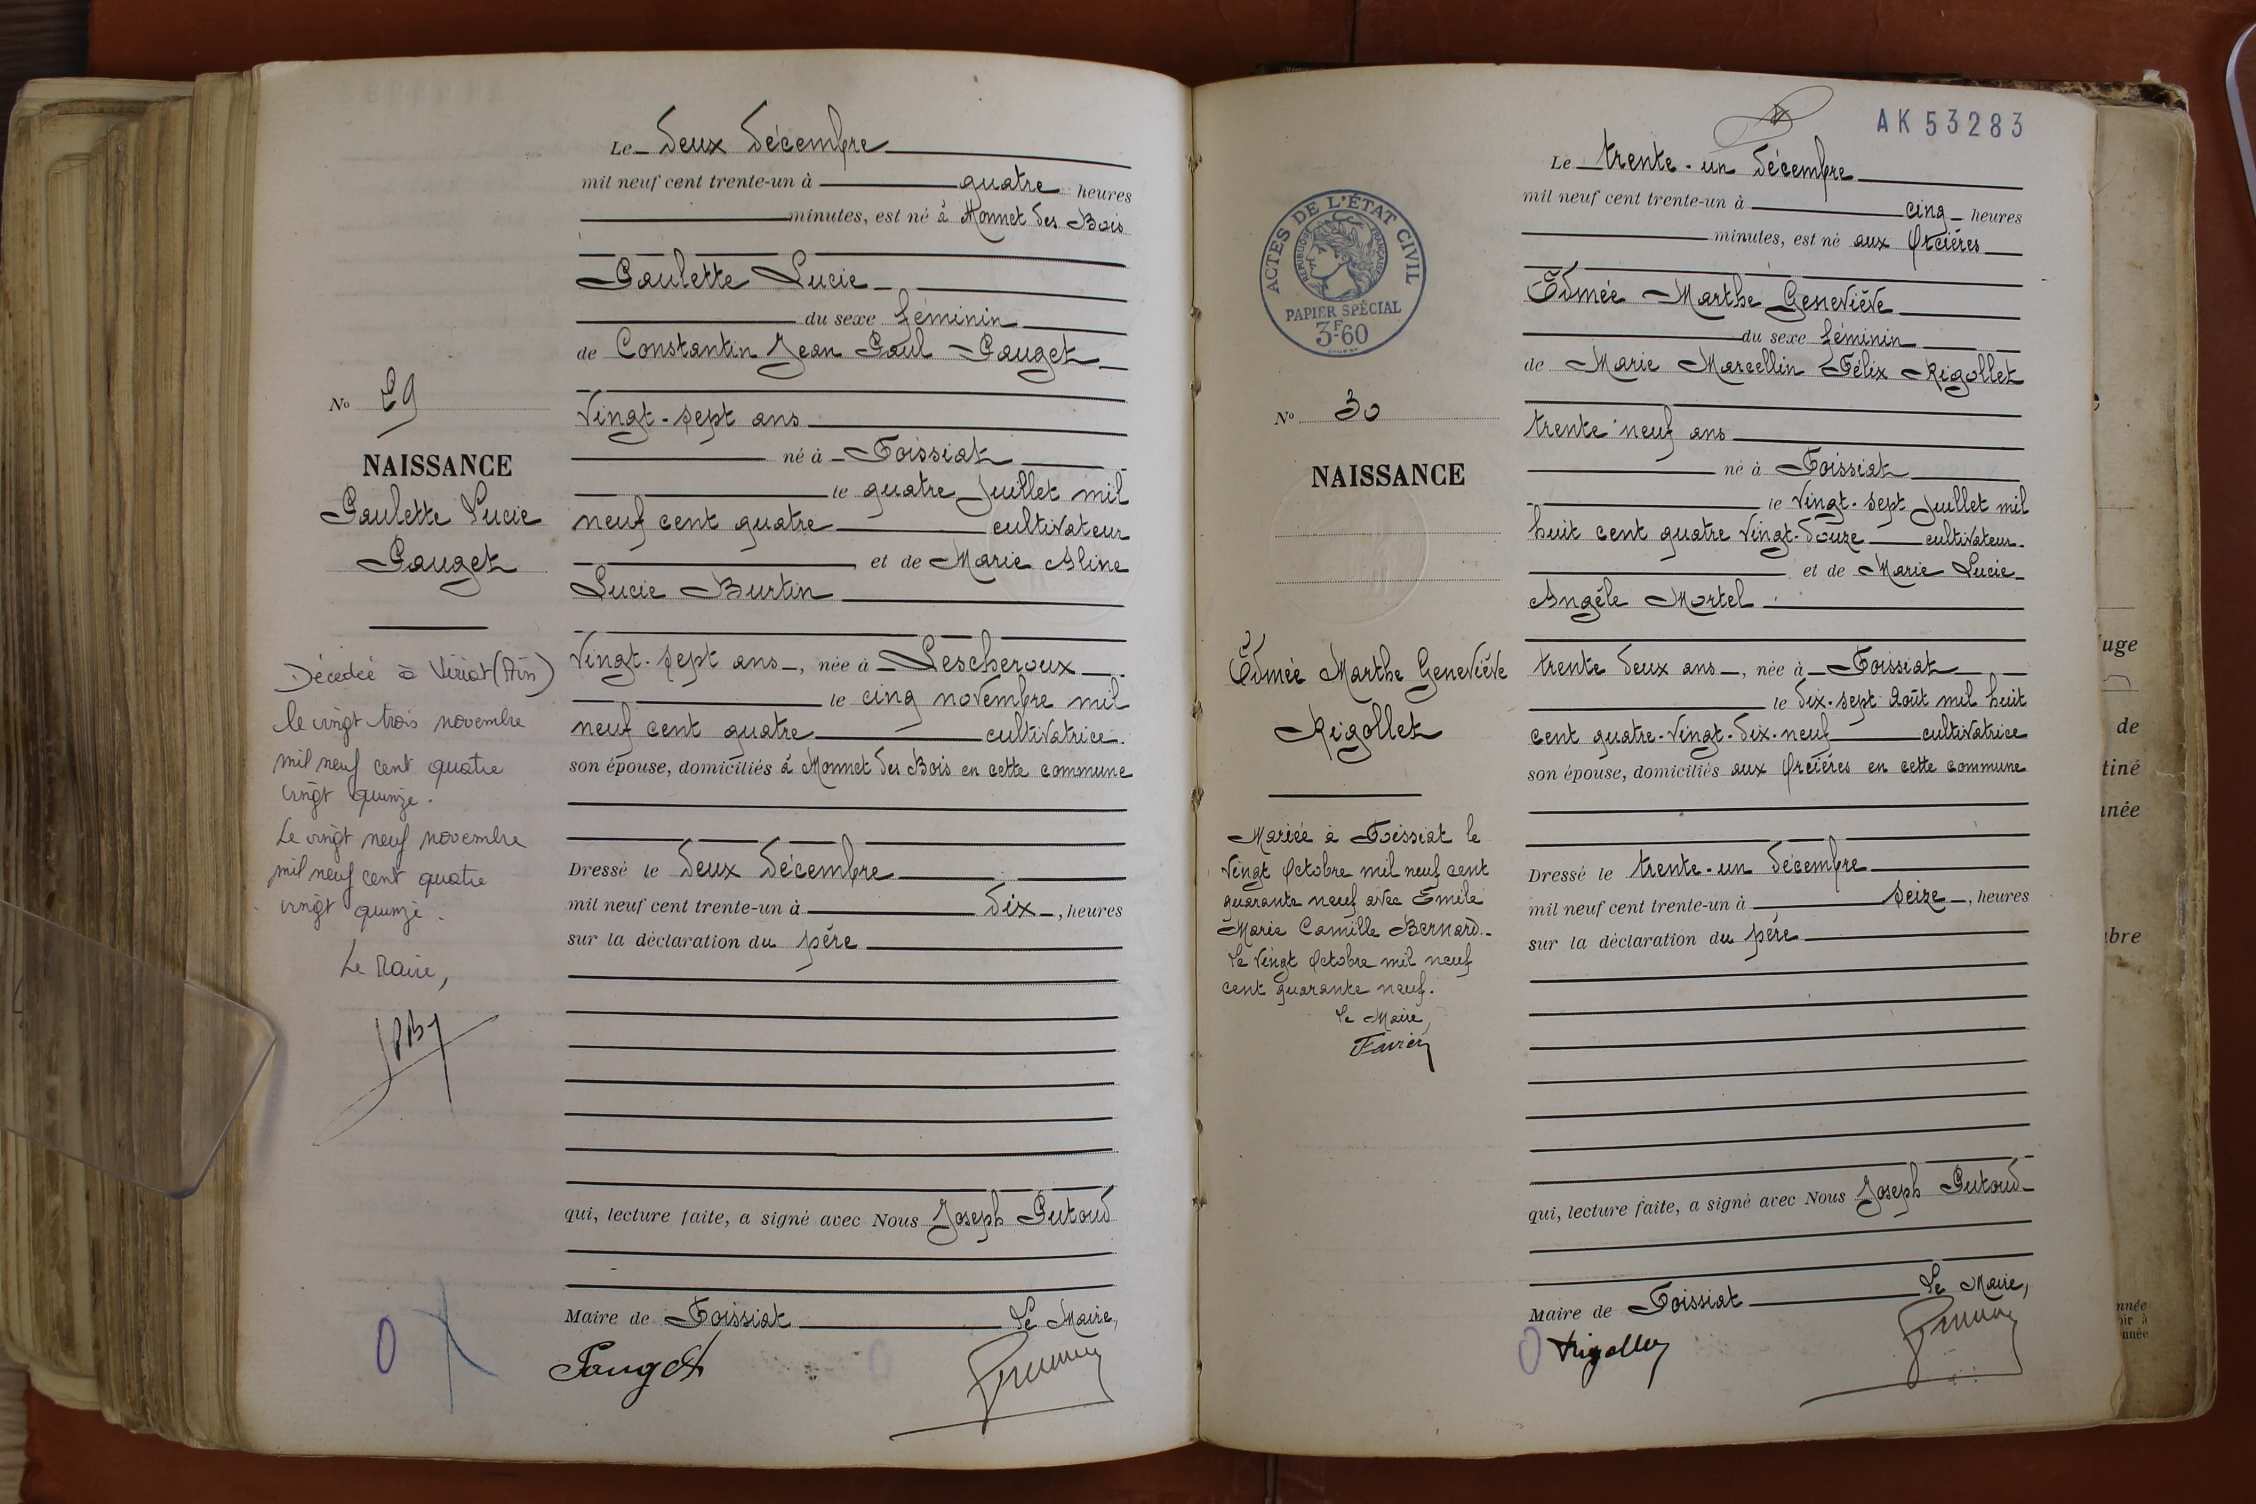 Le deux décembre
mil neuf cent trente-un à quatre heures
minutes, est né à Monnet des Bois
Paulette Lucie
du sexe féminin
de Constantin Jean Paul Pauget
vingt-sept ans
né à Foissiat
le quatre juillet mil
neuf cent quatre cultivateur
et de Marie Aline
Lucie Burtin
vingt-sept ans, née à Lescheroux
le cinq novembre mil
neuf cent quatre cultivatrice
son épouse, domiciliés à Monnet des Bois en cette commune
Dressé le deux décembre
mil neuf cent trente-un à dix, heures
sur la déclaration du père
qui, lecture faite, a signé avec Nous Joseph Putoud
Maire de Foissiat Le Maire,
Pauget
No 29
NAISSANCE
Paulette Lucie
Pauget
Décédée à Viriat (Ain)
le vingt trois novembre
mil neuf cent quatre
vingt quinze.
Le vingt neuf novembre
mil neuf cent quatre
vingt quinze.
Le Maire,
AK 53283
ACTES DE L'ÉTAT CIVIL
RÉPUBLIQUE FRANÇAISE
PAPIER SPÉCIAL
3F60
No 30
NAISSANCE
Edmée Marthe Geneviève
Rigollet
Mariée à Foissiat le
vingt octobre mil neuf cent
quarante neuf avec Emile
Marie Camille Bernard.
Le vingt octobre mil neuf
cent quarante neuf.
Le Maire,
Favier
Le trente-un décembre
mil neuf cent trente-un à cinq heures
minutes, est né aux Orcières
Edmée Marthe Geneviève
du sexe féminin
de Marie Marcellin Félix Rigollet
trente neuf ans
né à Foissiat
le vingt-sept juillet mil
huit cent quatre vingt-douze cultivateur
et de Marie Lucie
Angèle Mortel
trente deux ans, née à Foissiat
le dix-sept août mil huit
cent quatre-vingt-dix-neuf cultivatrice
son épouse, domiciliés aux Orcières en cette commune
Dressé le trente-un décembre
mil neuf cent trente-un à seize, heures
sur la déclaration du père
qui, lecture faite, a signé avec Nous Joseph Putoud
Maire de Foissiat Le Maire,
Rigollet
uge
de
tiné
nnée
bre
nnée
oir à
nnée